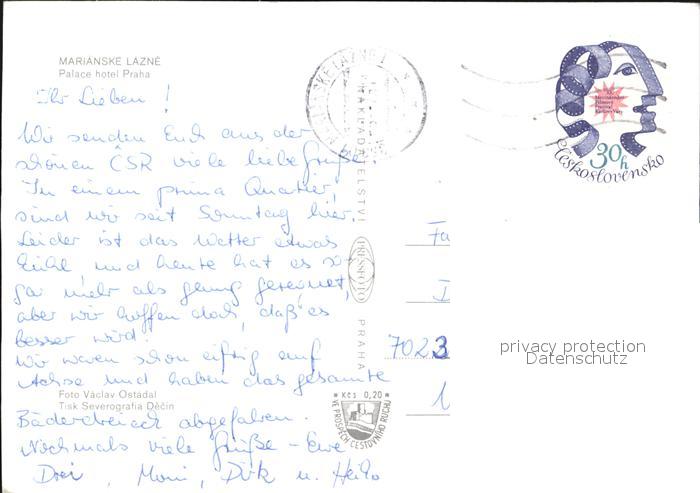 MARIÁNSKE LÁZNĚ
Palace hotel Praha
Ihr Lieben!
Wir senden Euch aus der
schönen ČSR viele liebe Grüße
In einem prima Quartier,
sind wir seit Sonntag hier.
Leider ist das Wetter etwas
kühl, und heute hat es so-
gar mehr als genug geregnet,
aber wir hoffen doch, daß es
besser wird.
Wir waren schon eifrig auf
Achse und haben das gesamte
Foto Václav Ostadal
Tisk Severografia Děčín
Bäderdreieck abgefahren.
Nochmals viele Grüße - Eure
Drei, Moni, Dirk u. Heiko
NAKLADATELSTVÍ
PRESSFOTO
PRAHA
* Kčs 0,20 *
VE PROSPĚCH CESTOVNÍHO RUCHU
Fa
7023
30h
Československo
privacy protection
Datenschutz